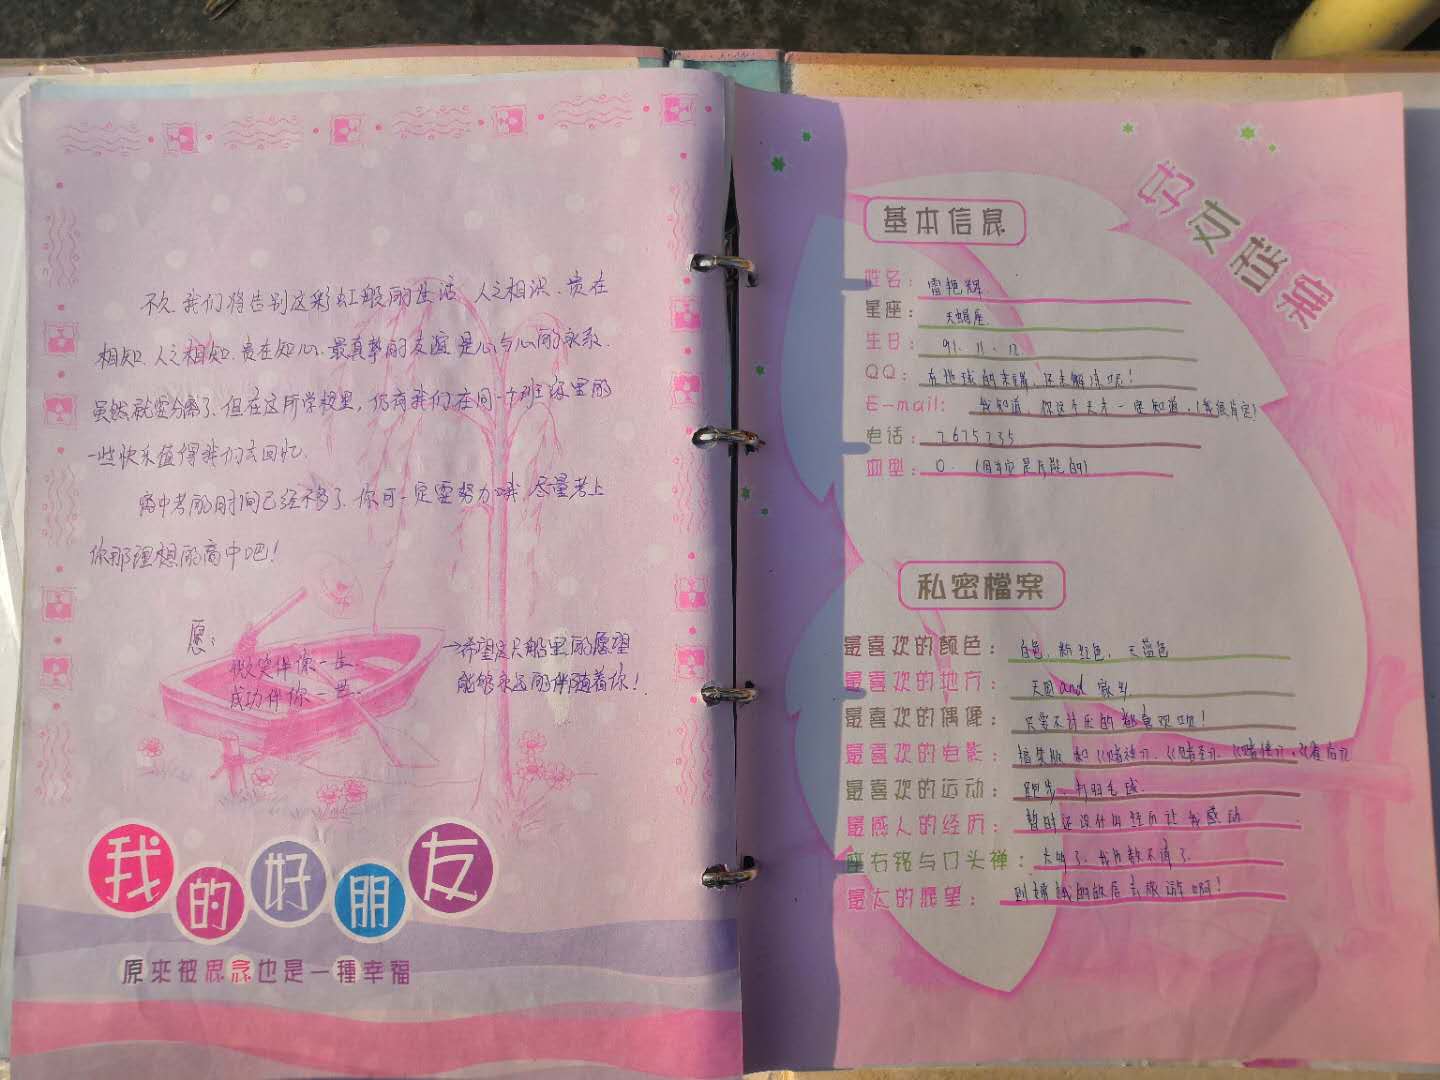 不久,我们将告别这彩虹般的生活,人之相识,贵在
相知,人之相知,贵在知心,最真挚的友谊是心与心的联系.
虽然就要分离了,但在这所学校里,仍有我们在同一个班级里的
一些快乐值得我们去回忆.
离中考的时间已经不多了,你可一定要努力哦,尽量考上
你那理想的高中吧!
愿:
微笑伴你一生.
成功伴你一世.
→希望这只船里的愿望
能够永远的伴随着你!
我的好朋友
原來被思念也是一種幸福
好友檔案
基本信息
姓名: 雷艳辉
星座: 天蝎座
生日: 91.11.12.
QQ: 有地球的束缚,还未解冻呢!
E-mail: 我知道,你这个天才一定知道.(我很肯定)
电话: 2675235
血型: O.
私密檔案
最喜欢的颜色: 白色、粉红色、天蓝色
最喜欢的地方: 天国and 家乡
最喜欢的偶像: 只要不讨厌的都喜欢呗!
最喜欢的电影: 搞笑版和《赌神》、《赌圣》、《赌侠》、
最喜欢的运动: 跑步、打羽毛球
最感人的经历: 暂时还没什么经历让我感动
座右铭与口头禅: 太多了,我所数不清了
最大的愿望: 到嫦娥的故居去旅游啊!